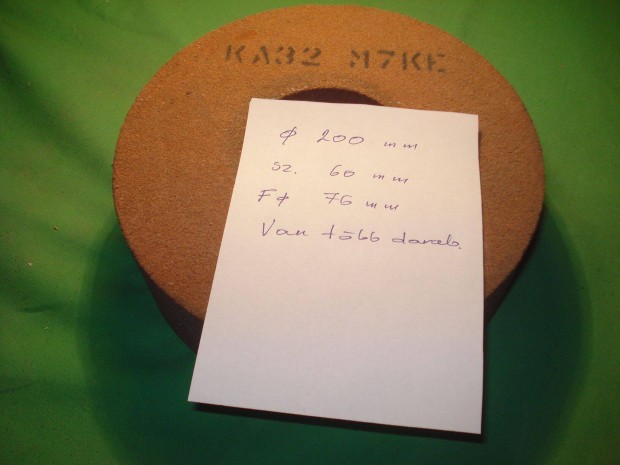 KA32 M7KE
φ 200 mm
sz. 60 mm
Fφ 76 mm
Van több darab.